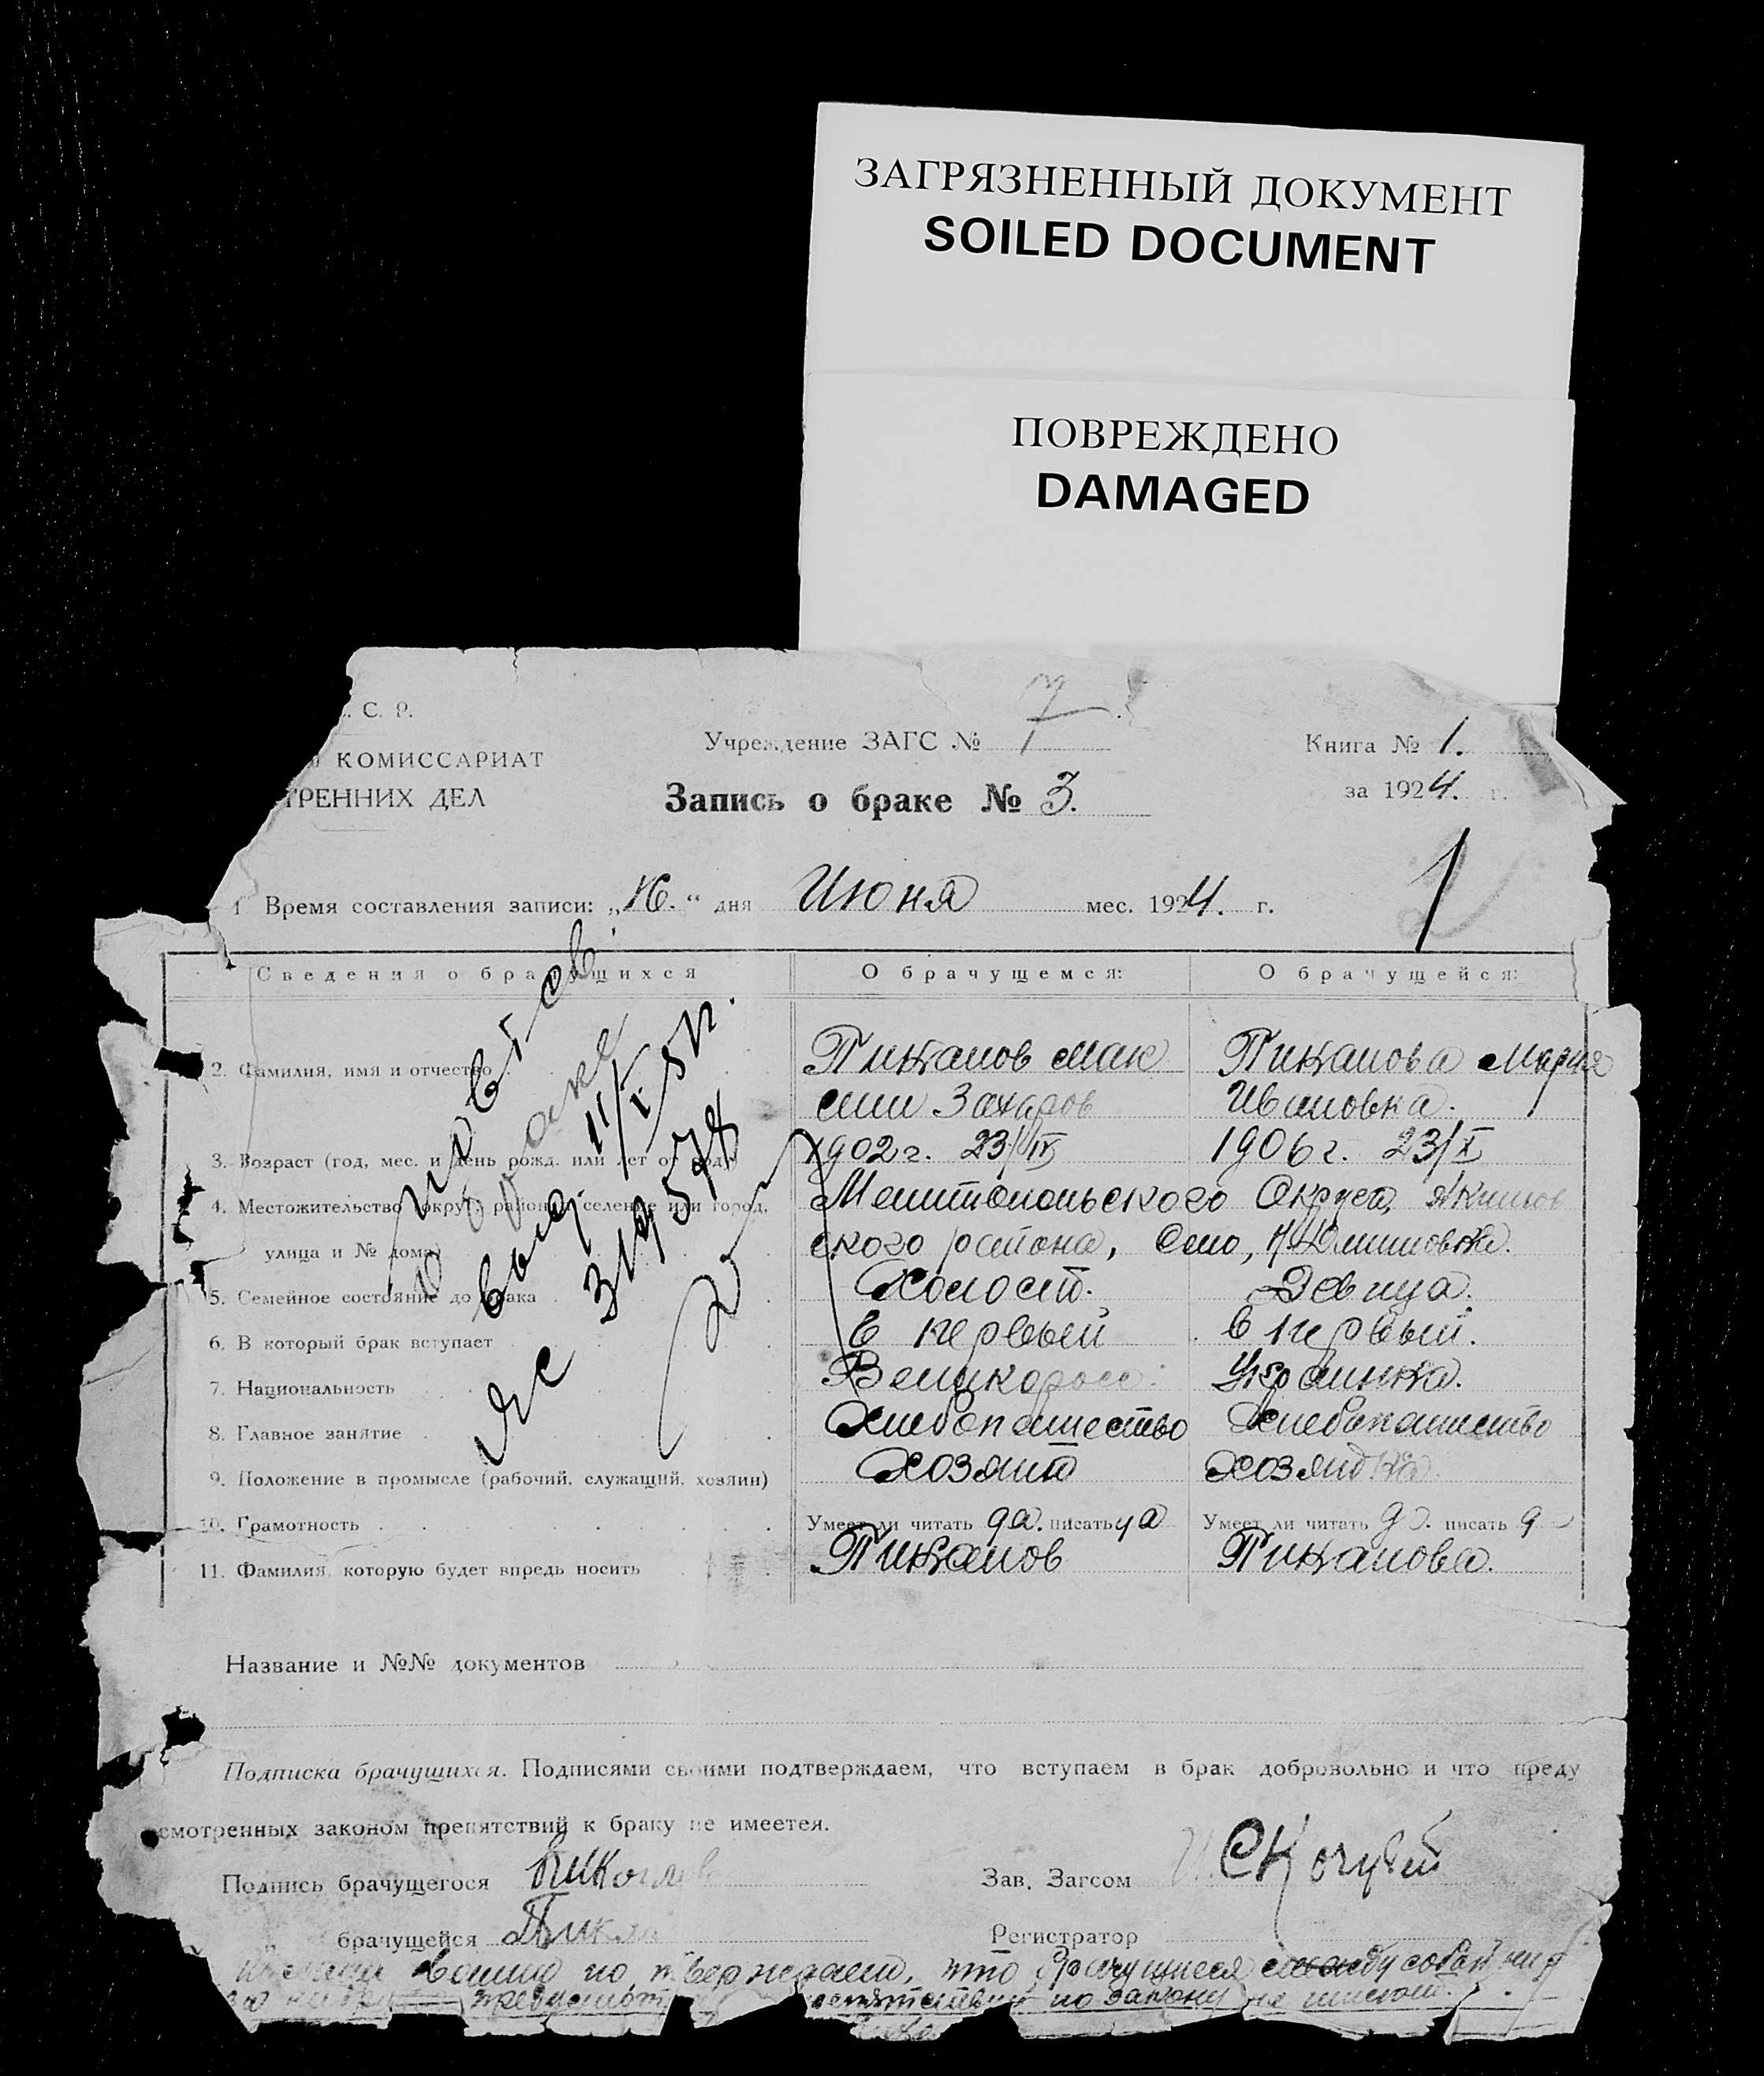 ЗАГРЯЗНЕННЫЙ ДОКУМЕНТ
SOILED DOCUMENT
ПОВРЕЖДЕНО
DAMAGED
. С. Р.
КОМИССАРИАТ
ТРЕННИХ ДЕЛ
Учреждение ЗАГС №
Книга № 1.
за 1924. г.
Запись о браке № 3.
1 Время составления записи: „16.“ дня Июня мес. 1924. г.
1
Сведения о брачущихся
О брачущемся:
О брачущейся:
2. Фамилия, имя и отчество
Пикалов Мак
Пикалова Мария
сим Захаров
Ивановна.
3. Возраст (год, мес. и день рожд. или лет от роду)
1902 г. 23/
1906 г. 23/X
4. Местожительство (округ, район, селение или город,
Мелитопольского Округа, Акимов
улица и № дома)
ского района, Село,
5. Семейное состояние до брака
Холост.
Девица.
6. В который брак вступает
в первый
в первый.
7. Национальность
Великоросс.
Украинка.
8. Главное занятие
Хлебопашество
Хлебопашество
9. Положение в промысле (рабочий, служащий, хозяин)
Хозяин
хозяйка
10. Грамотность
Умеет ли читать да. писать да
Умеет ли читать да. писать д
11. Фамилия, которую будет впредь носить
Пикалов
Пикалова.
Название и №№ документов
Подписка брачущихся. Подписями своими подтверждаем, что вступаем в брак добровольно и что преду
смотренных законом препятствий к браку не имеется.
Подпись брачущегося Пикалов
Зав. Загсом Кочубей
брачущейся Пикал
Регистратор
что брачущиеся между собой
препятствий по закону не имеют.